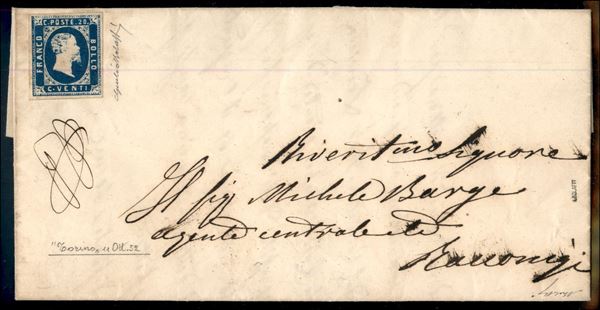 C. POSTE. 20.
FRANCO
BOLLO
C. VENTI
Riverit mo Signore
Il sig Michele Barge
agente centrale
Racconigi
"Torino, 11 Ott. 52